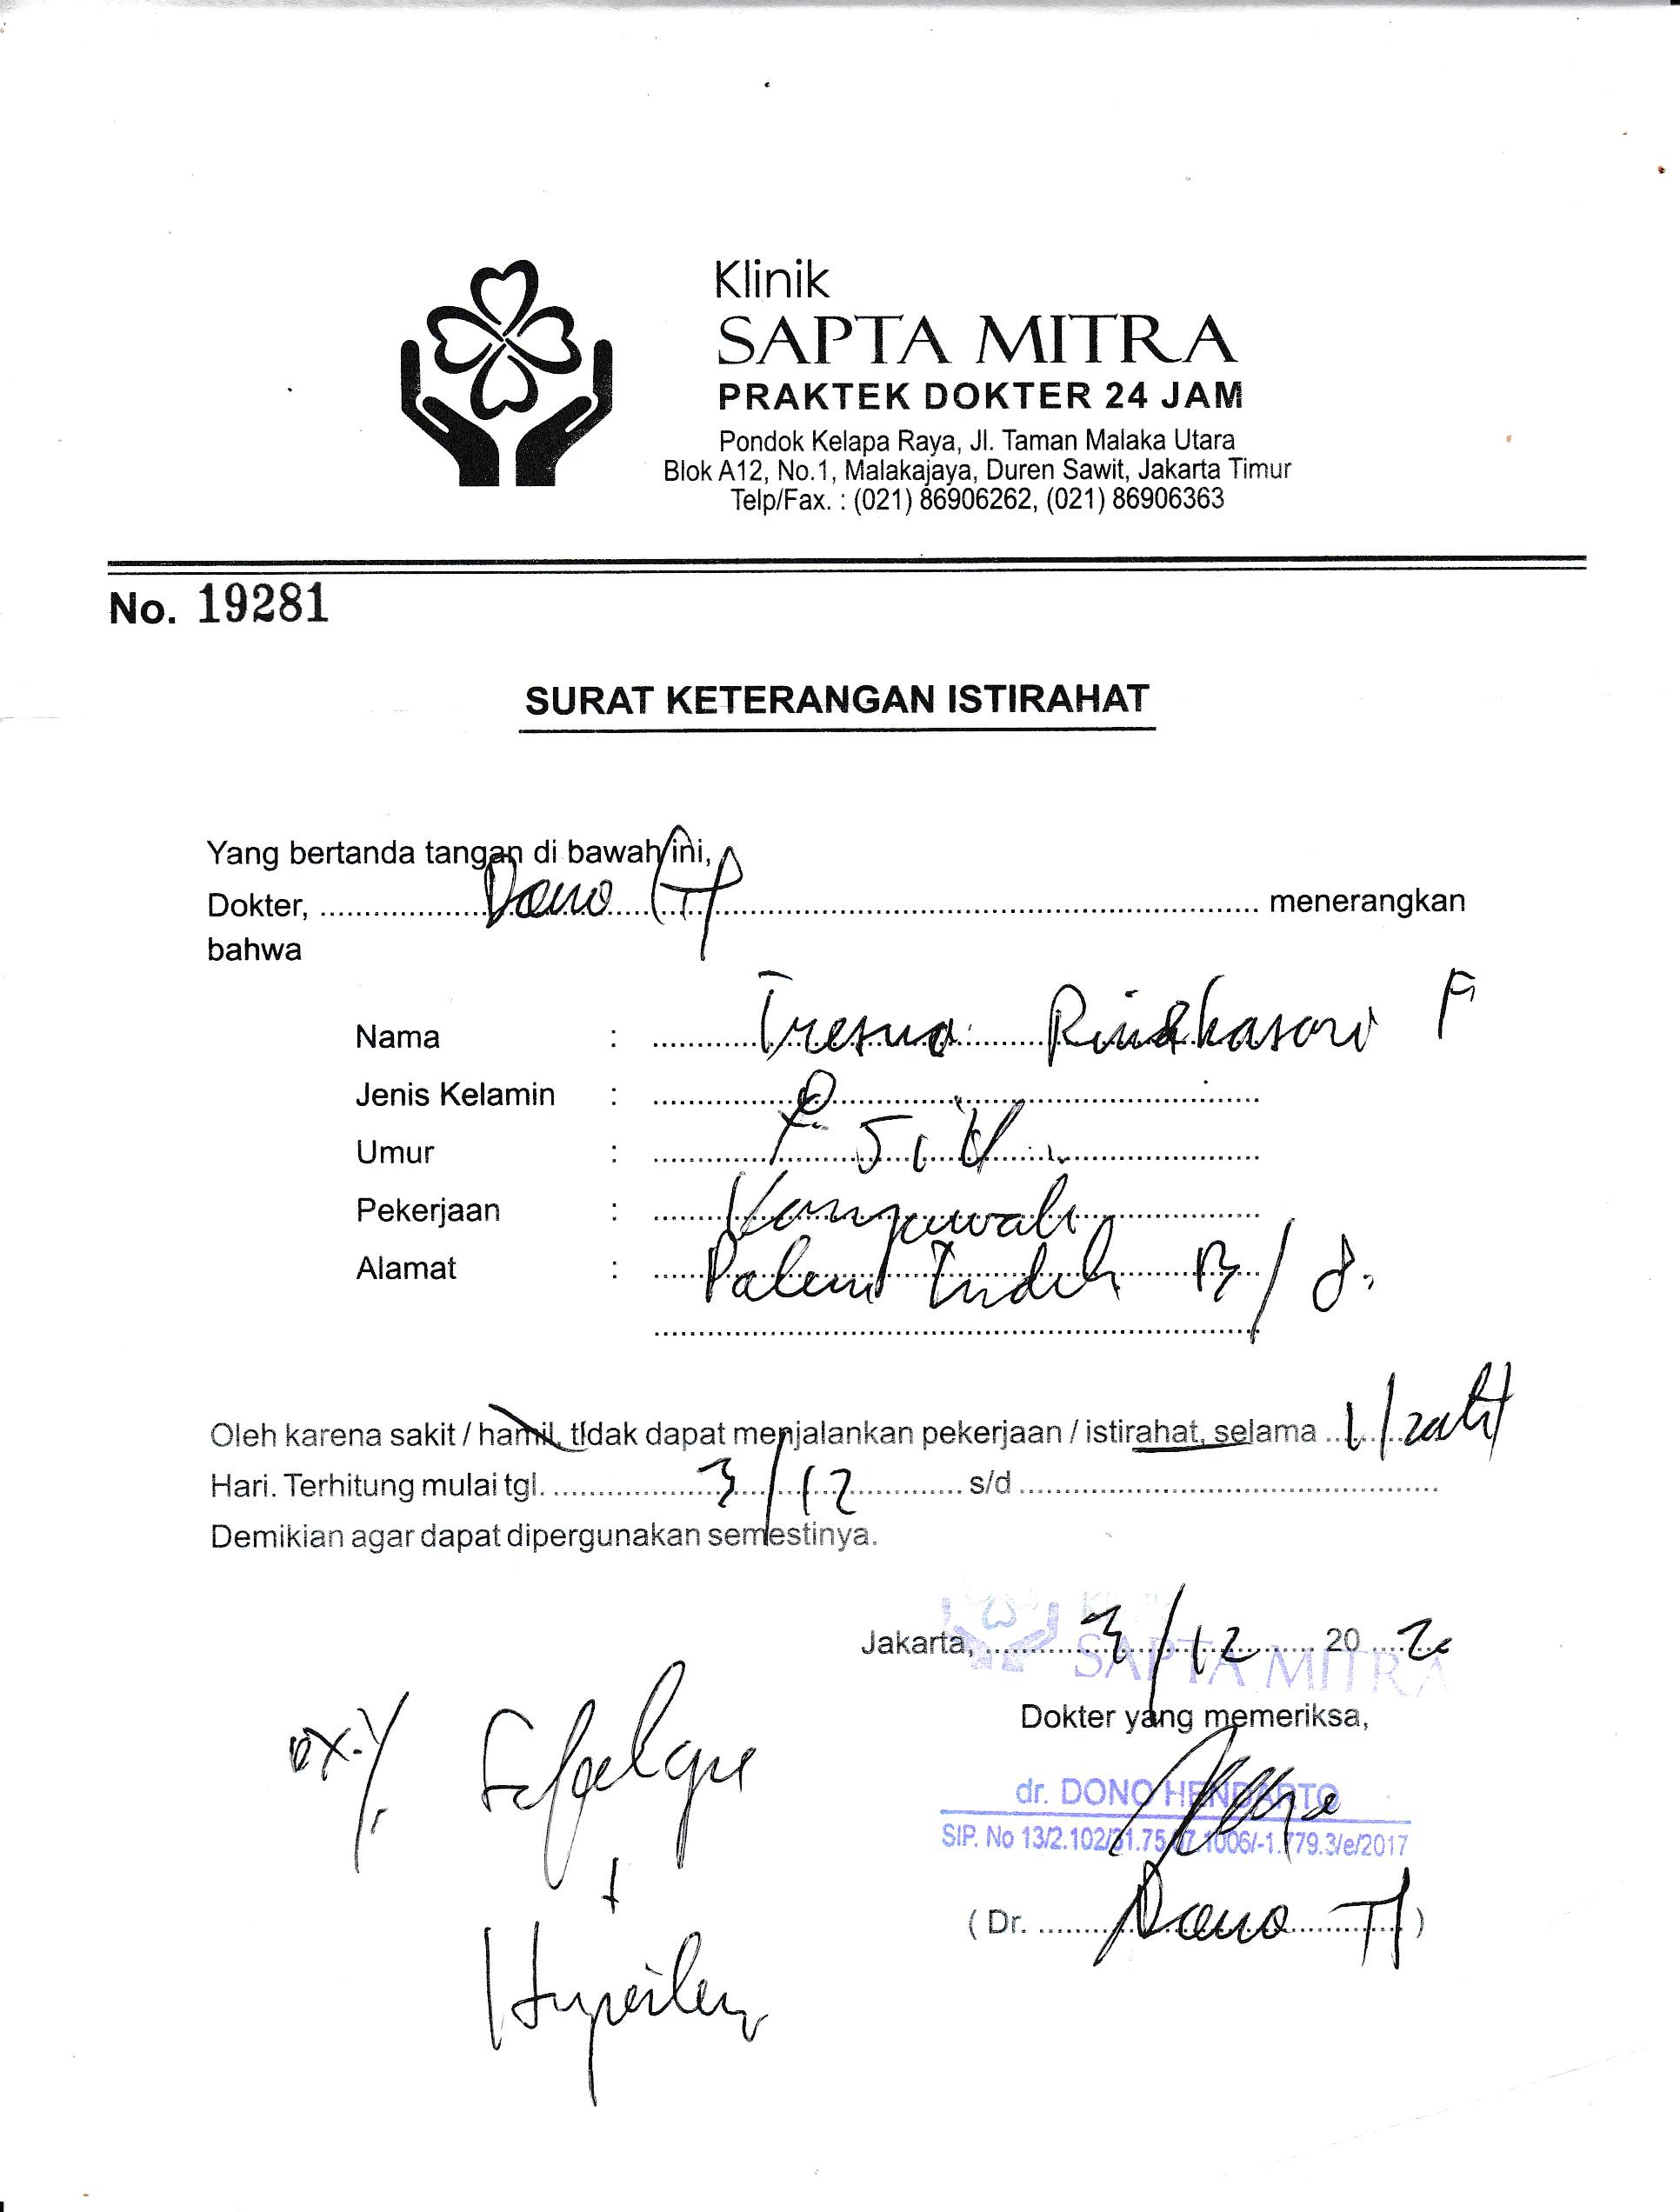 Klinik
SAPTA MITRA
PRAKTEK DOKTER 24 JAM
Pondok Kelapa Raya, Jl. Taman Malaka Utara
Blok A12, No.1, Malakajaya, Duren Sawit, Jakarta Timur
Telp/Fax. : (021) 86906262, (021) 86906363
No. 19281
SURAT KETERANGAN ISTIRAHAT
Yang bertanda tangan di bawah ini,
Dokter, Dono H menerangkan
bahwa
Nama : Tresna
Jenis Kelamin :
Umur : 51
Pekerjaan : Karyawati
Alamat : Palem Indah B/8
Oleh karena sakit / hamil, tidak dapat menjalankan pekerjaan / istirahat, selama 1/satu
Hari. Terhitung mulai tgl. 3/12 s/d
Demikian agar dapat dipergunakan semestinya.
Klinik
SAPTA MITRA
Jakarta, 3/12 20 20
Dokter yang memeriksa,
dr. DONO HENDARTO
SIP. No 13/2.102/31.75.07.1006/-1.779.3/e/2017
( Dr. Dono H )